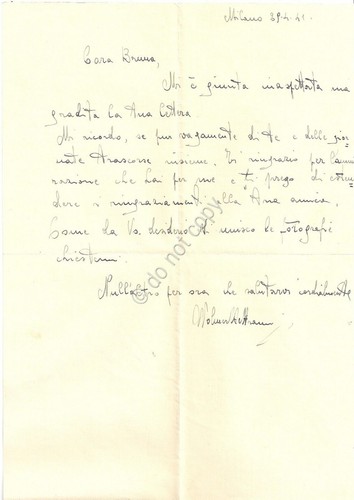 Milano 29.4.41.
Cara Bruna,
Mi è giunta inaspettata ma
gradita la tua lettera
Mi ricordo, se pur vagamente di te e delle gior
nate trascorse insieme. Ti ringrazio per l'ammi
razione che hai per me e ti prego di esten
dere i ringraziamenti alla tua amica.
Come da Vs. desiderio vi unisco le fotografie
chiestemi.
Null'altro per ora che salutarvi cordialmente
© do not copy